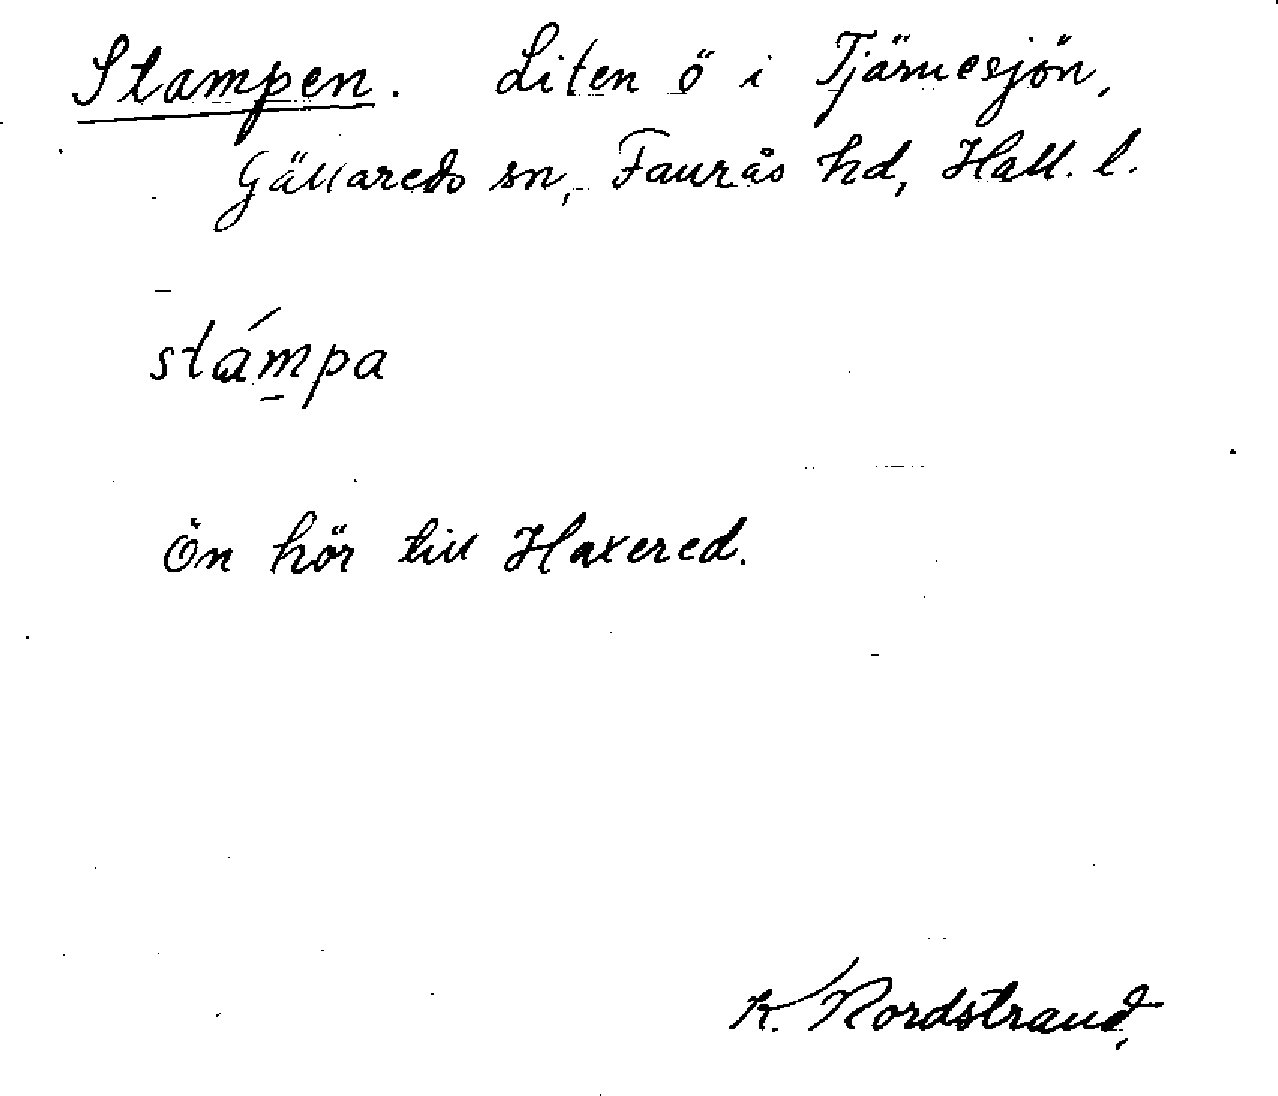 Stampen. Liten ö i Tjärnesjön,
Gällareds sn, Faurås hd, Hall. l.
stámpa
Ön hör till Haxered.
K. Nordstrand.